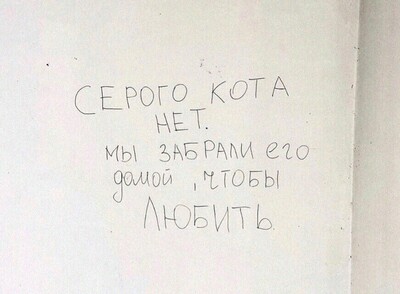 СЕРОГО КОТА
НЕТ.
МЫ ЗАБРАЛИ ЕГО
домой, ЧТОБЫ
ЛЮБИТЬ.